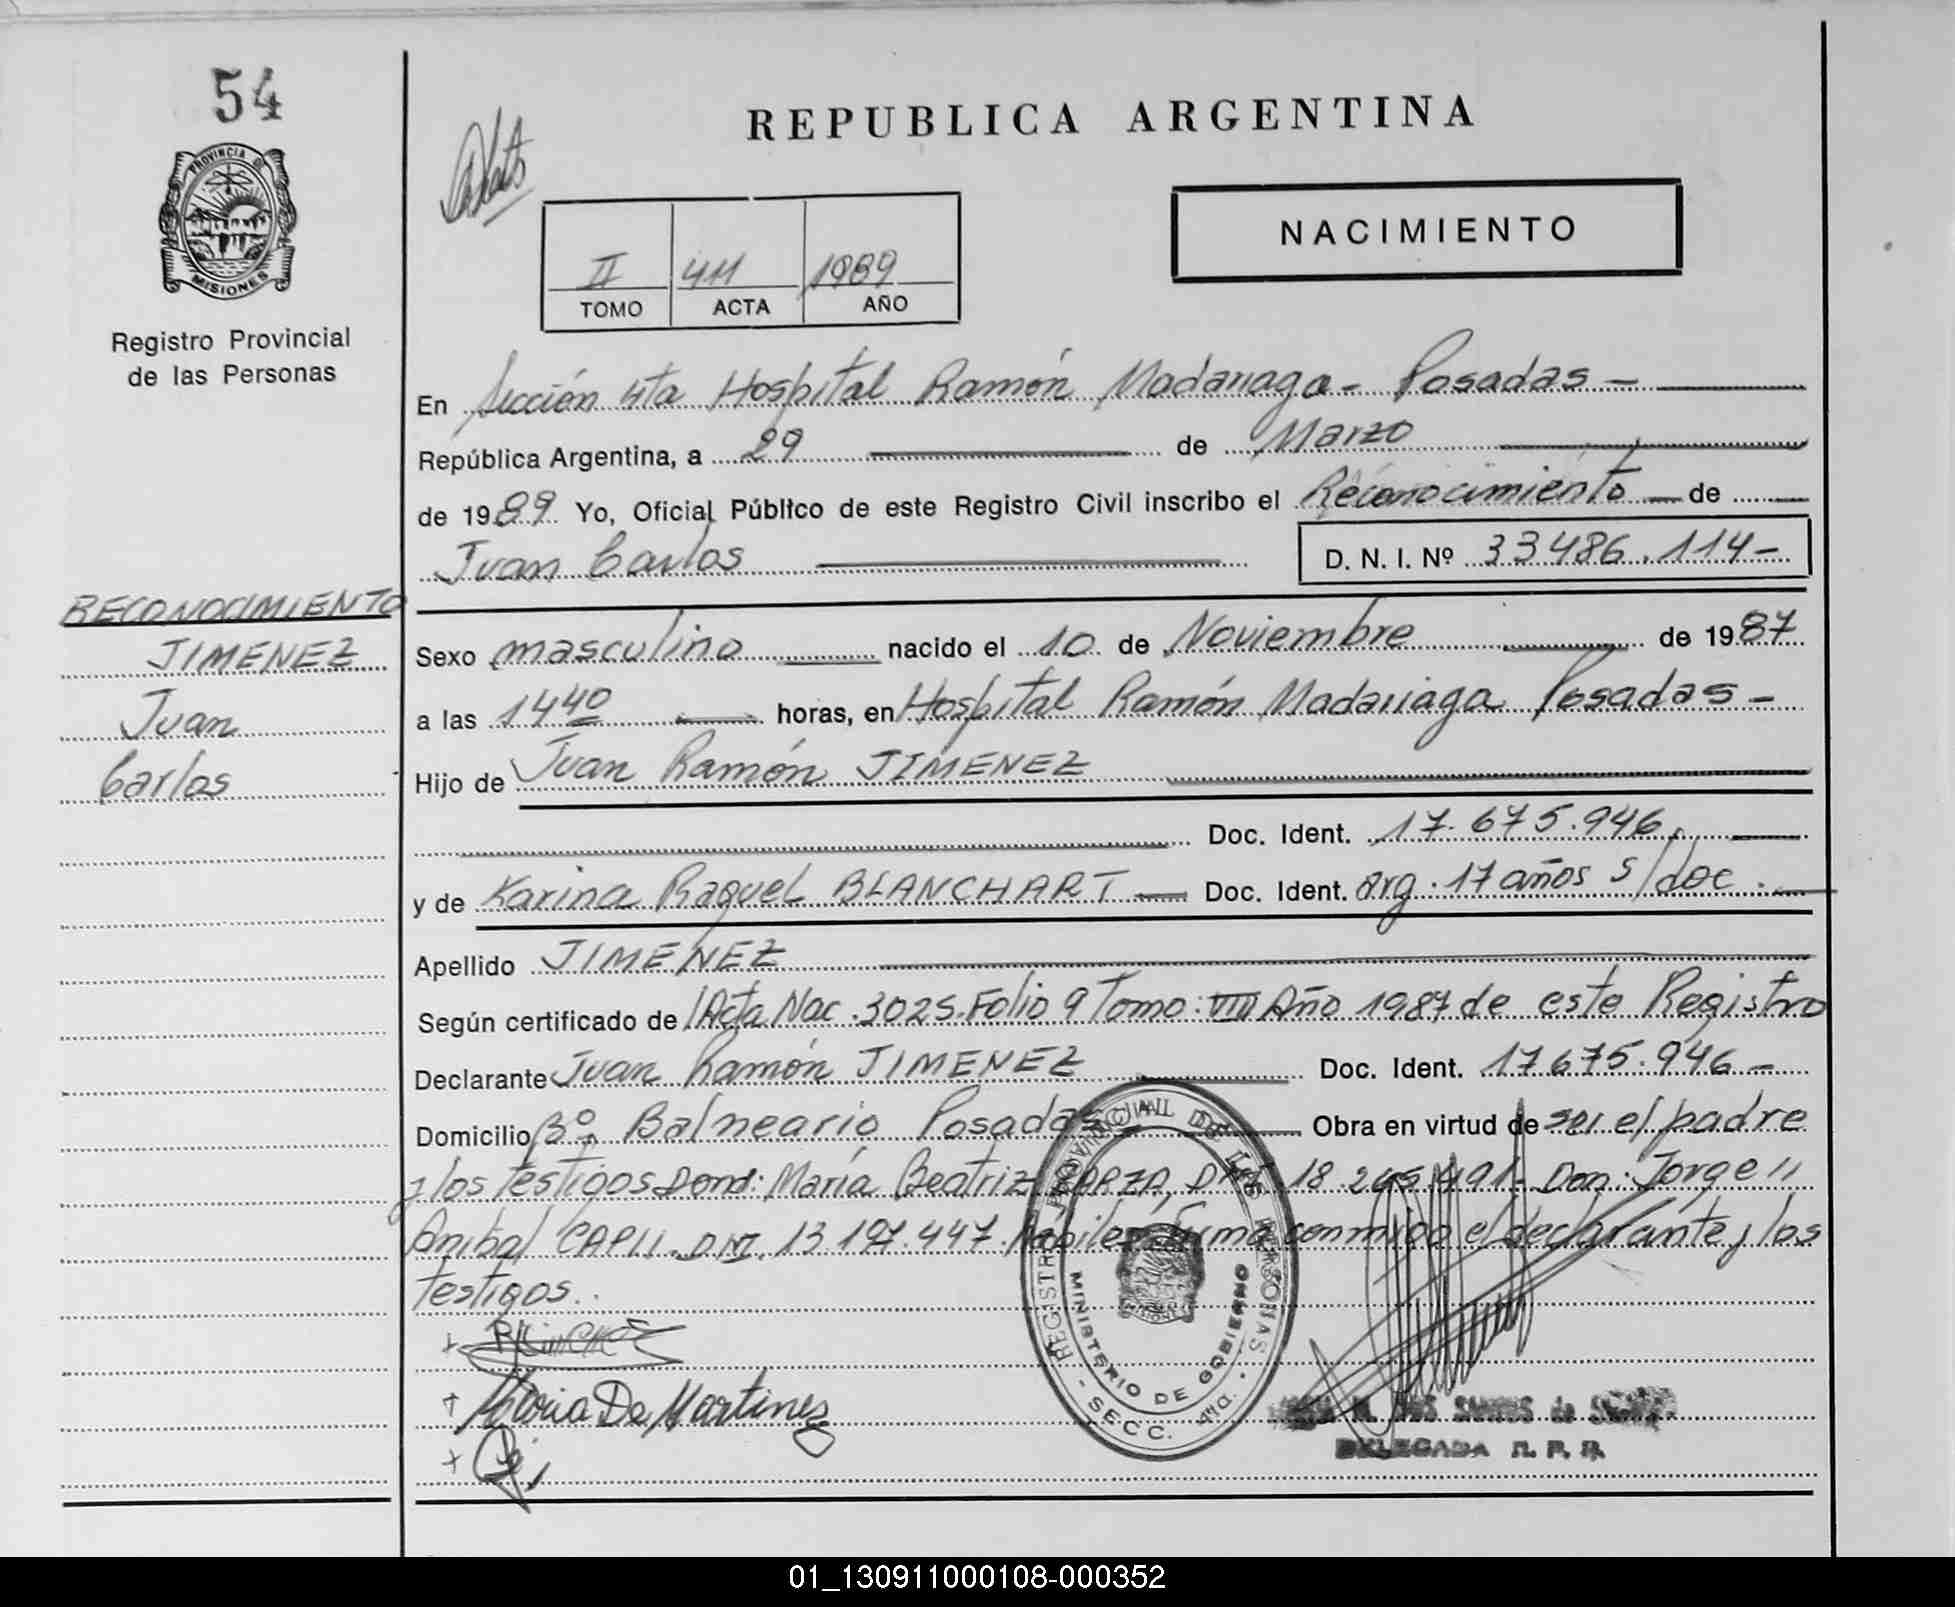 54
PROVINCIA DE
MISIONES
Registro Provincial
de las Personas
REPUBLICA ARGENTINA
NACIMIENTO
II 411 1989
TOMO ACTA AÑO
En Sección 4ta Hospital Ramón Madariaga - Posadas -
República Argentina, a 29 de Marzo
de 1989 Yo, Oficial Público de este Registro Civil inscribo el Reconocimiento de
Juan Carlos D. N. I. Nº 33486.114-
RECONOCIMIENTO
JIMENEZ
Juan
Carlos
Sexo masculino nacido el 10 de Noviembre de 1987
a las 1440 horas, en Hospital Ramón Madariaga Posadas -
Hijo de Juan Ramón JIMENEZ
Doc. Ident. 17.675.946.
y de Karina Raquel BLANCHART Doc. Ident. arg. 17 años s/doc.
Apellido JIMENEZ
Según certificado de Acta Nac. 3025. Folio 9 Tomo: VIII Año 1987 de este Registro
Declarante Juan Ramón JIMENEZ Doc. Ident. 17675.946-
Domicilio Bº Balneario Posadas Obra en virtud de ser el padre
y los testigos : María Beatriz 18. .491- Don: Jorge
Anibal DNI. 13.197.447. hábiles. Firma conmigo el declarante y los
testigos.
María De Martinez
REGISTRO PROVINCIAL DE LAS PERSONAS
MINISTERIO DE GOBIERNO
- SECC. 4ta. -
DOS SANTOS de
DELEGADA R. P. P.
01_130911000108-000352